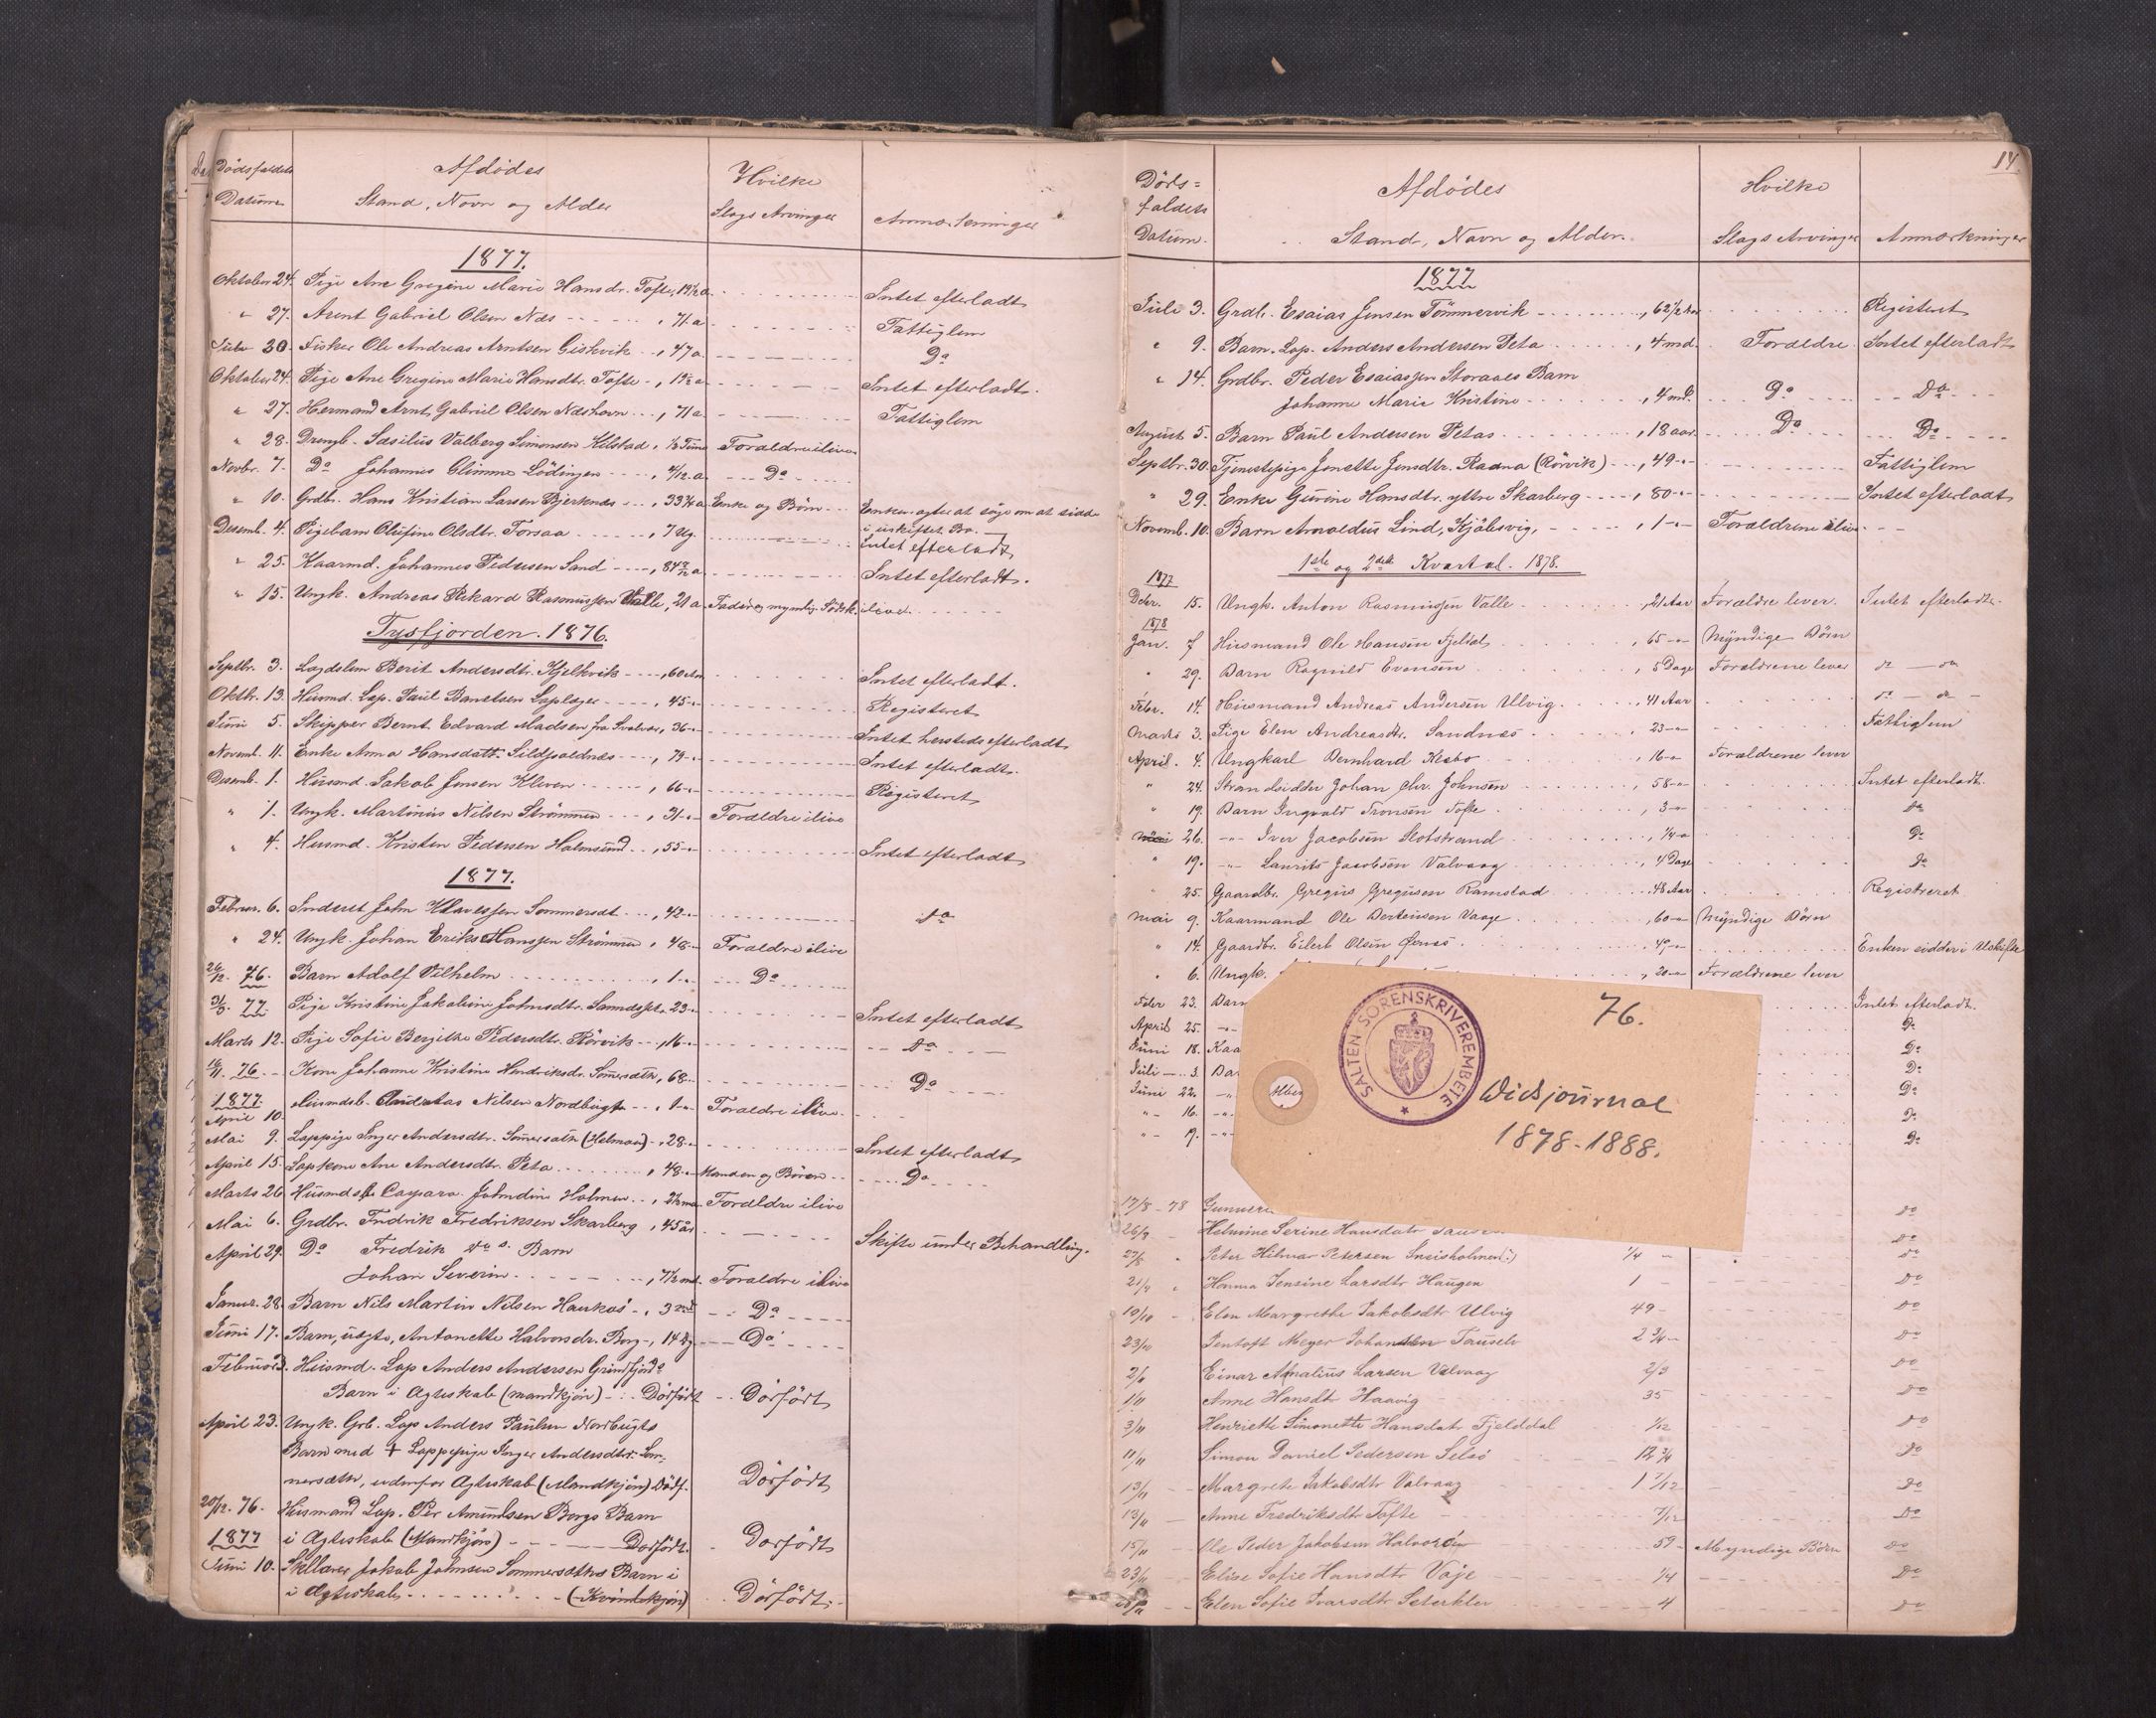 Dødsfaldets
Datum
Afdødes
Stand, Navn og Alder
Hvilke
Slags Arvinger
Anmærkninger
1877.
Oktober 24. Pige Ane Gregine Marie Hansdr. Tofte, 19½ a. Intet efterladt
" 27. Arent Gabriel Olsen Næs , 71 a Fattiglem
30. Fisker Ole Andreas Arntsen Giskvik , 47 a. Do
Oktober 24. Pige Ane Gregine Marie Hansdtr. Tofte , 19½ a Intet efterladt.
" 27. Hermand Arnt Gabriel Olsen Næshavn , 71 a. Fattiglem
" 28. Drengb. Valberg Simonsen Kilstad, Forældre ilive
Novbr. 7. Do Johannes Glimme Lødingen Do
" 10. Grdbr. Hans Kristian Larsen Bjerknæs , 33¾ a Enke og Børn Enken agter at søge om at sidde
i uskiftet Bo.
Desemb. 4. Pigebarn Olufine Olsdtr. Forsaa , 7 Ug. Intet efterladt
" 25. Kaarmd. Johannes Pedersen Sand Intet efterladt.
" 15. Ungk. Andreas Rikard Rasmussen Valle, 21 a. Fader og myndig Södsk. ilive.
Tysfjorden. 1876.
Septbr. 3. Lægdslem Berit Andersdtr. Kjelkvik , 60 Aar Intet efterladt.
Oktbr. 13. Husmd. Lap. Paul Lapleger , 45 Registeret
Juni 5. Skipper Bernt Edvard Madsen fra Svolvær, 36 Intet herstedsefterladt
Novemb. 11. Enke Anna Hansdatt. , 79 Intet efterladt.
Desemb. 1. Husmd. Jakob Jensen Kleven , 66 Registeret
" 1. Ungk. Martinus Nilsen Strømmen , 31 Forældre ilive
" 4. Husmd. Kristen Pedersen Holmsund , 55 Intet efterladt
1877.
Februar. 6. Inderst John Klavessen Sommersæt , 42 Do
" 24. Ungk. Johan Eriks Hanssen Strømmen , 48 Forældre ilive
26/12. 76. Barn Adolf Vilhelm , 1 Do
3/3. 77. Pige Kristine Jakobine Johnsdtr. , 23 Intet efterladt
Marts 12. Pige Sofie Bergithe Pedersdtr. Rørvik , 16 Do
76. Kone Johanne Kristine Hendriksdr. Sommersæth , 68 Do
1877.
April 10. Husmdsb. Nilsen Nordbugt , 1 Forældre ilive
Mai 9. Lappige Inger Andersdtr. Sommersæth (Helman) , 28 Intet efterladt
April 15. Lapkone Ane Andersdtr. Peta , 48 Manden og Børn Do
Marts 26. Caspara Johndine Holmen Forældre ilive
Mai 6. Grdbr. Fredrik Fredriksen Skarberg , 45 år Skifte under Behandling.
April 29. Do Fredrik do s. Barn
Johan Severin , 7½ md. Forældre ilive
Januar. 28. Barn Nils Martin Nilsen Haukøs , 3 Do
Juni 17. Barn, uægte, Antonette Halvorsdr. Borg , 14 Dg Do
Februar 3. Husmd. Lap Anders Andersen Grundfjord
Barn i Ægteskab (mandkjön) Dødfödt Dødfödt
April 23. Ungk. Grb. Lap Anders Paulsen Nordbugts
Barn med Lappepige Inger Andersdtr. Som-
mersæth, udenfor Ægteskab (Mandkjön) Dödf. Dødfödt
20/12. 76. Husmand Lap. Per Amundsen Borgs Barn
1877 i Ægteskab (Mandkjön) Dødfödt. Dødfödt
Juni 10. Jakob Johnsen Sommersæths Barn i
i Ægteskab (Kvindekjön) Dødfödt.
14.
Døds=
faldets
Datum.
Afdødes
Stand, Navn og Alder.
Hvilke
Slags Arvinger
Anmærkninger
1877
Juli 3. Grdb. Esaias Jensen Tömmervik , 62½ Aar Registeret
" 9. Barn. Lap. Anders Andersen Peta , 4 md. Forældre Intet efterladt
" 14. Grdbr. Peder Esaiassen Storaaes Barn
Johanne Marie Kristine , 4 md. Do Do
August 5. Barn Paul Andersen Petas , 18 aar. Do Do
Septbr. 30. Tjenestepige Jonette Jensdtr. Raana (Rörvik) , 49 Fattiglem
" 29. Enke Gurine Hansdtr. yttre Skarberg , 80 Intet efterladt
Novemb. 10. Barn Arnoldus Lind, Kjöbsvig, , 1 Forældrene ilive
1ste og 2det Kvartal. 1878.
1877
Decbr. 15. Ungk. Anton Rasmussen Valle , 21 Aar Forældre lever. Intet efterladt.
1878
Jan. 7 Husmand Ole Hansen Fjeldal , 65 Myndige Børn
" 29. Barn Ragnild Evensen , 5 Dage Forældrene lever do — do
Febr. 14. Husmand Andreas Andersen Ulvig , 41 Aar do
Marts 3. Pige Elen Andreasdtr. Sandnæs , 23 Fattiglem
April. 4. Ungkarl Bernhard Næbo , 16 Forældrene lever
" 24. Strandsidder Johan Chr. Johnsen , 58 Intet efterladt.
" 19. Barn Ingvald Tronsen Tofte , 3 Do
Mai 26. Iver Jacobsen Slotstrand , ¼ Do
" 19. Laurits Jacobsen Valvaag , 4 Dage Do
" 25. Gaardbr. Gregus Gregusen Ramstad , 48 Aar Registreret
Mai 9. Kaarmand Ole Bertinsen Vaage , 60 Myndige Börn
" 14. Gaardbr. Eilert Olsen Enken sidder i Uskifte
" 6. Ungk. , 20 Forældrene lever
Febr 23. Barn Intet efterladt.
April 25. Do
Juni 18. Kaa Do
Juli 3. Ba Do
Juni 22. Do
" 16. Do
" 9. Do
76.
SALTEN SORENSKRIVEREMBETE
Didsjournal
1878-1888.
17/8 - 78 Do
26/9 Helmine Serine Hansdatr Do
27/8 Peter Hilmar Petersen Sneisholmen ¼ Do
21/9 Hanna Jensine Larsdtr Haugen 1 Do
10/10 Elen Margrethe Jakobsdtr Ulvig 49 Do
23/10 Pentoft Meyer 2¾ Do
2/6 Einar Larsen Valvaag 2/3 Do
1/11 Anne Hansdtr Haavig 35 Do
3/11 Henriette Simonette Hansdatr Fjelddal 1/12 Do
11/11 Simon Daniel Pedersen Selsö 12¾ Do
13/11 Margrete Jakobsdtr Valvaag 1 7/12 Do
13/11 Anne Fredriksdtr Tofte 7/12 Do
15/11 Ole Peder Jakobsen Halvorsen 59 Myndige Börn Do
23/11 Elise Sofie Hansdtr Vaje ¼ Do
Elen Sofie Ivarsdtr 4 Do